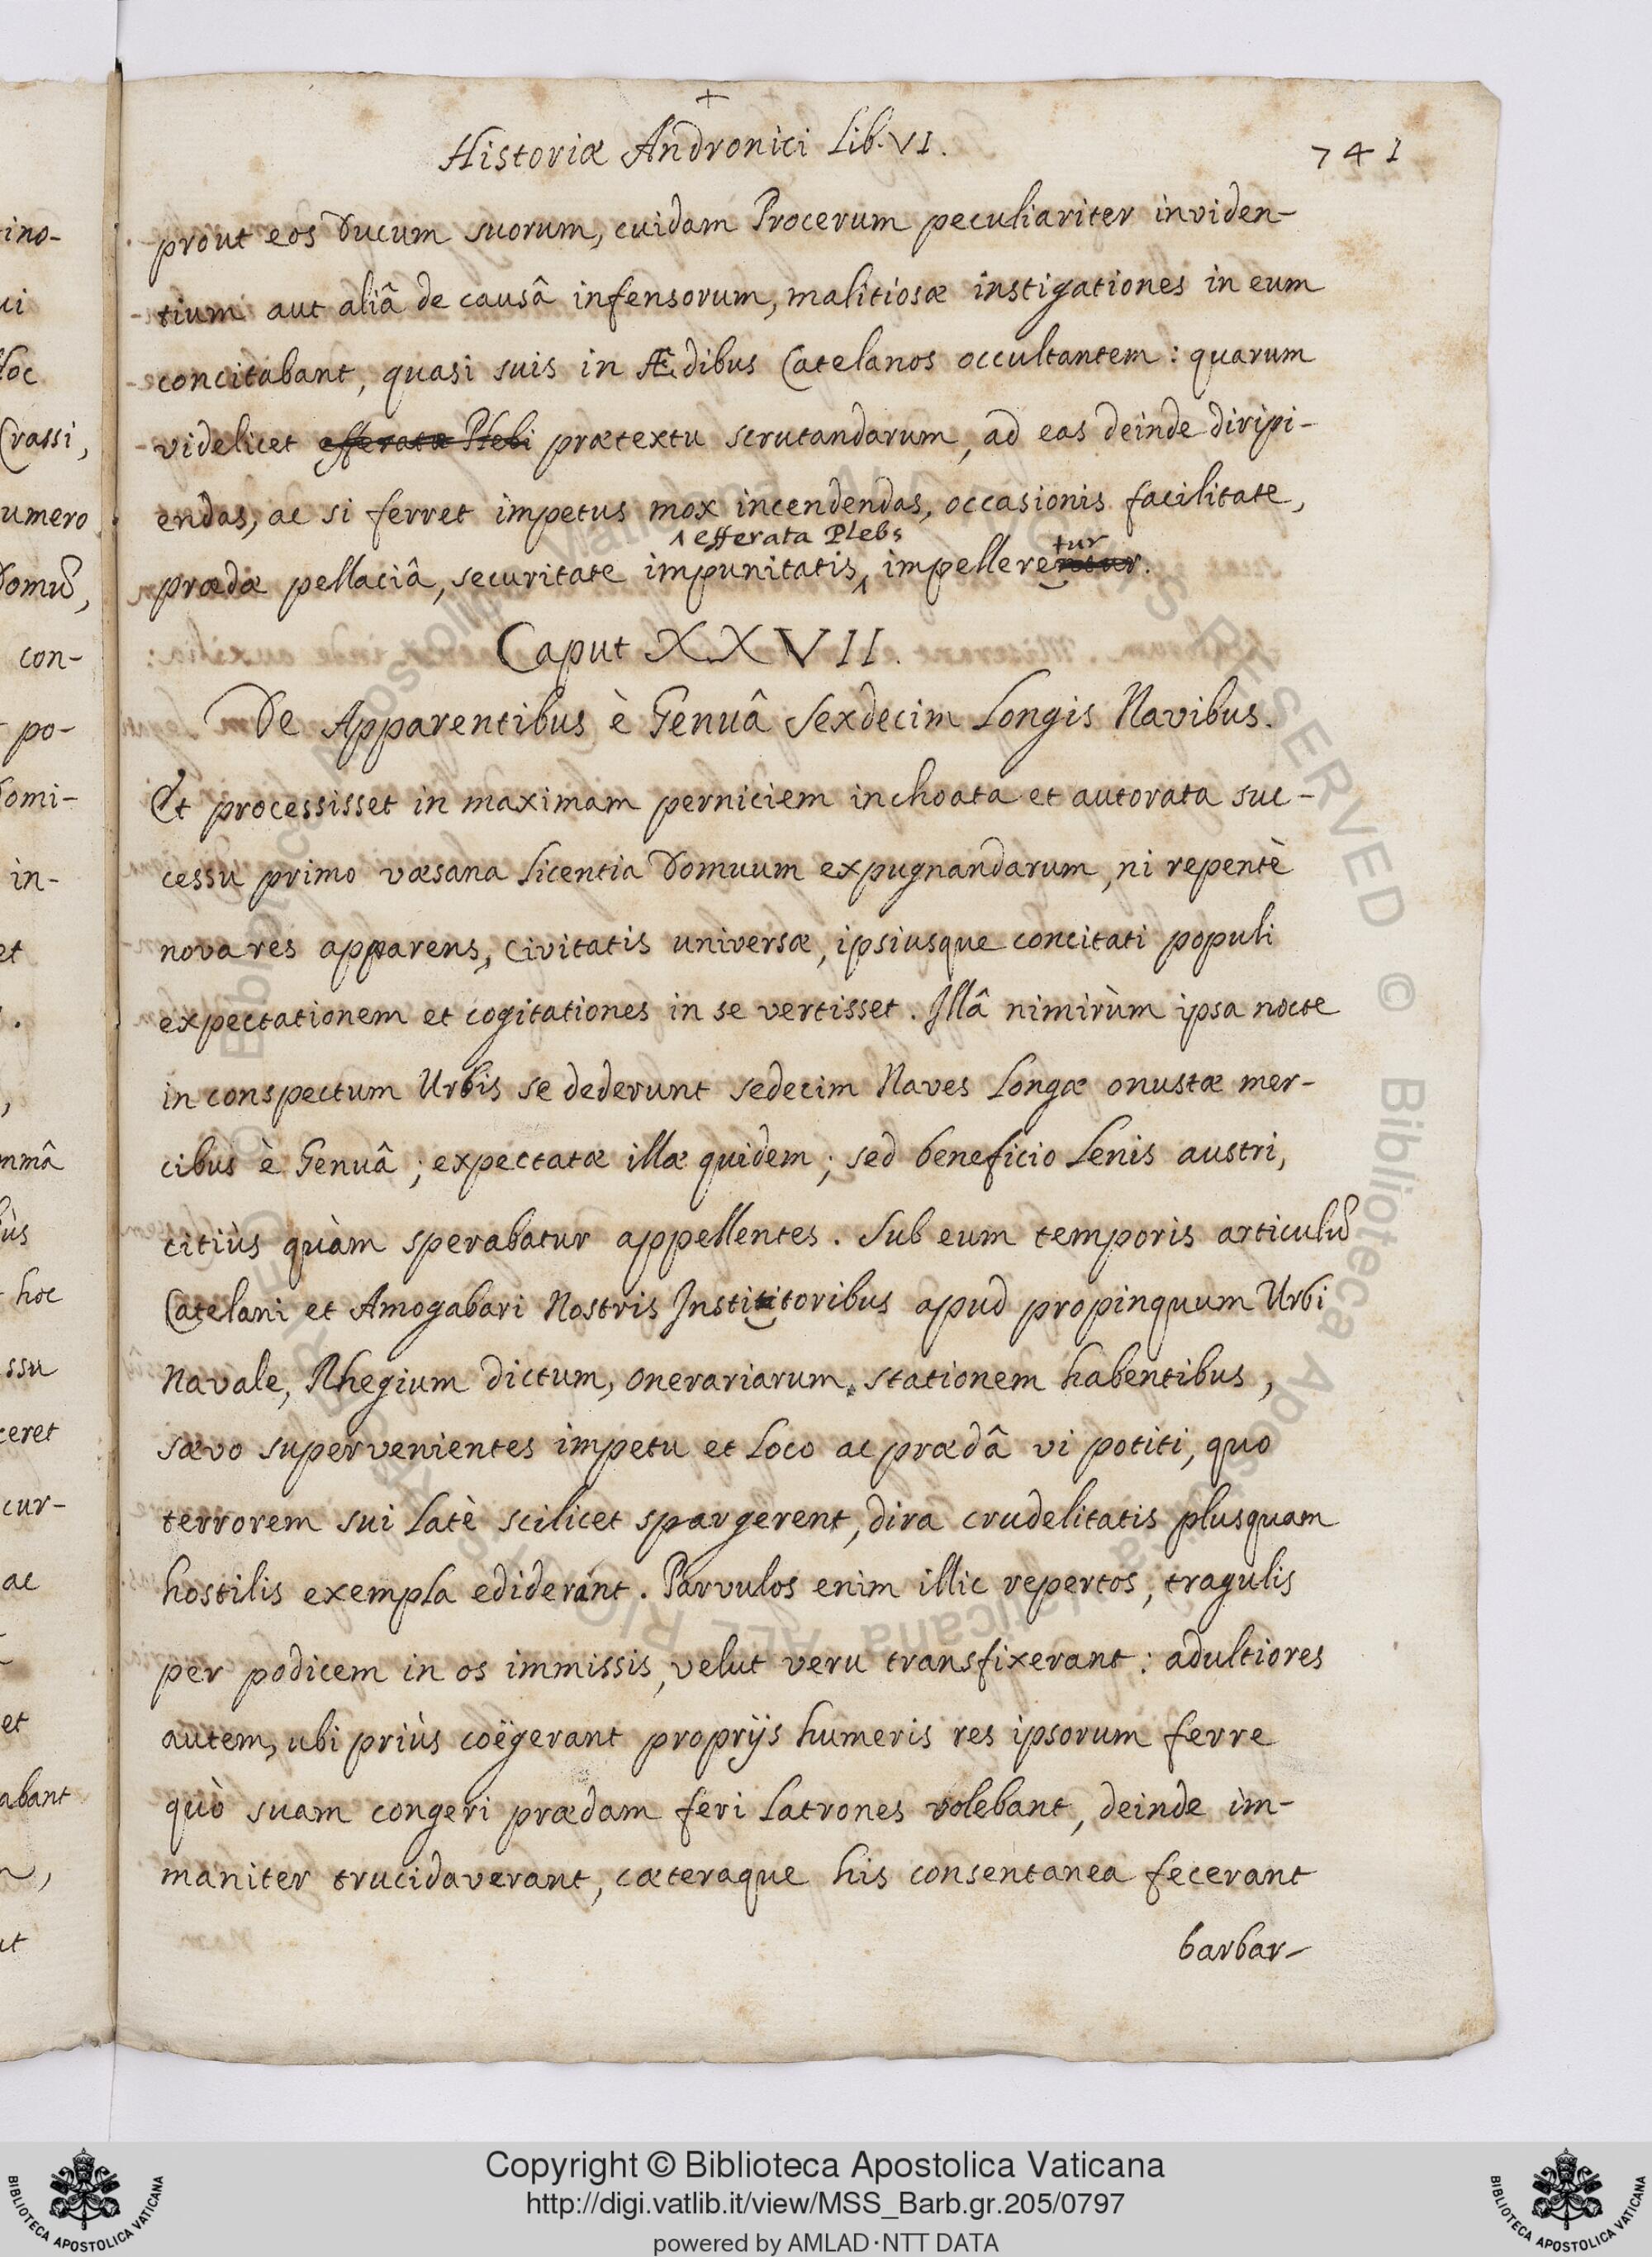 +
Historiæ Andronici Lib. VI. 741
prout eos Ducum suorum, cuidam Procerum peculiariter inviden-
tium aut aliâ de causâ infensorum, malitiosæ instigationes in eum
concitabant, quasi suis in Ædibus Catelanos occultantem: quarum
videlicet efferatæ Plebi prætextu scrutandarum, ad eas deinde diripi-
endas, ac si ferret impetus mox incendendas, occasionis facilitate,
efferata Plebs tur
prædæ pellaciâ, securitate impunitatis, impellere.
Caput XXVII.
De Apparentibus è Genuâ Sexdecim Longis Navibus.
Et processisset in maximam perniciem inchoata et autorata suc-
cessu primo væsana licentia Domuum expugnandarum, ni repentè
nova res apparens, civitatis universæ, ipsiusque concitati populi
expectationem et cogitationes in se vertisset. Illâ nimirùm ipsa nocte
in conspectum Urbis se dederunt sedecim Naves Longæ onustæ mer-
cibus è Genuâ; expectatæ illæ quidem; sed beneficio Lenis austri,
citiùs quàm sperabatur appellentes. Sub eum temporis articulũ
Catelani et Amogabari Nostris Instititoribus apud propinquum Urbi
Navale, Rhegium dictum, onerariarum stationem habentibus,
sævo supervenientes impetu et Loco ac prædâ vi potiti, quo
terrorem sui latè scilicet spargerent, dira crudelitatis plusquam
hostilis exempla ediderant. Parvulos enim illic repertos, tragulis
per podicem in os immissis, velut veru transfixerant: adultiores
autem, ubi priùs coëgerant proprijs humeris res ipsorum ferre
quò suam congeri prædam feri Latrones volebant, deinde im-
maniter trucidaverant, cæteraque his consentanea fecerant
barbar-
ino-
ui
hoc
Crassi,
umero
Domũ,
con-
po-
Domi-
in-
et
mmâ
hoc
ssu
ceret
cur-
ac
et
abant
ut
Copyright © Biblioteca Apostolica Vaticana
http://digi.vatlib.it/view/MSS_Barb.gr.205/0797
powered by AMLAD·NTT DATA
BIBLIOTECA APOSTOLICA VATICANA
BIBLIOTECA APOSTOLICA VATICANA
© Biblioteca Apostolica Vaticana ALL RIGHTS RESERVED